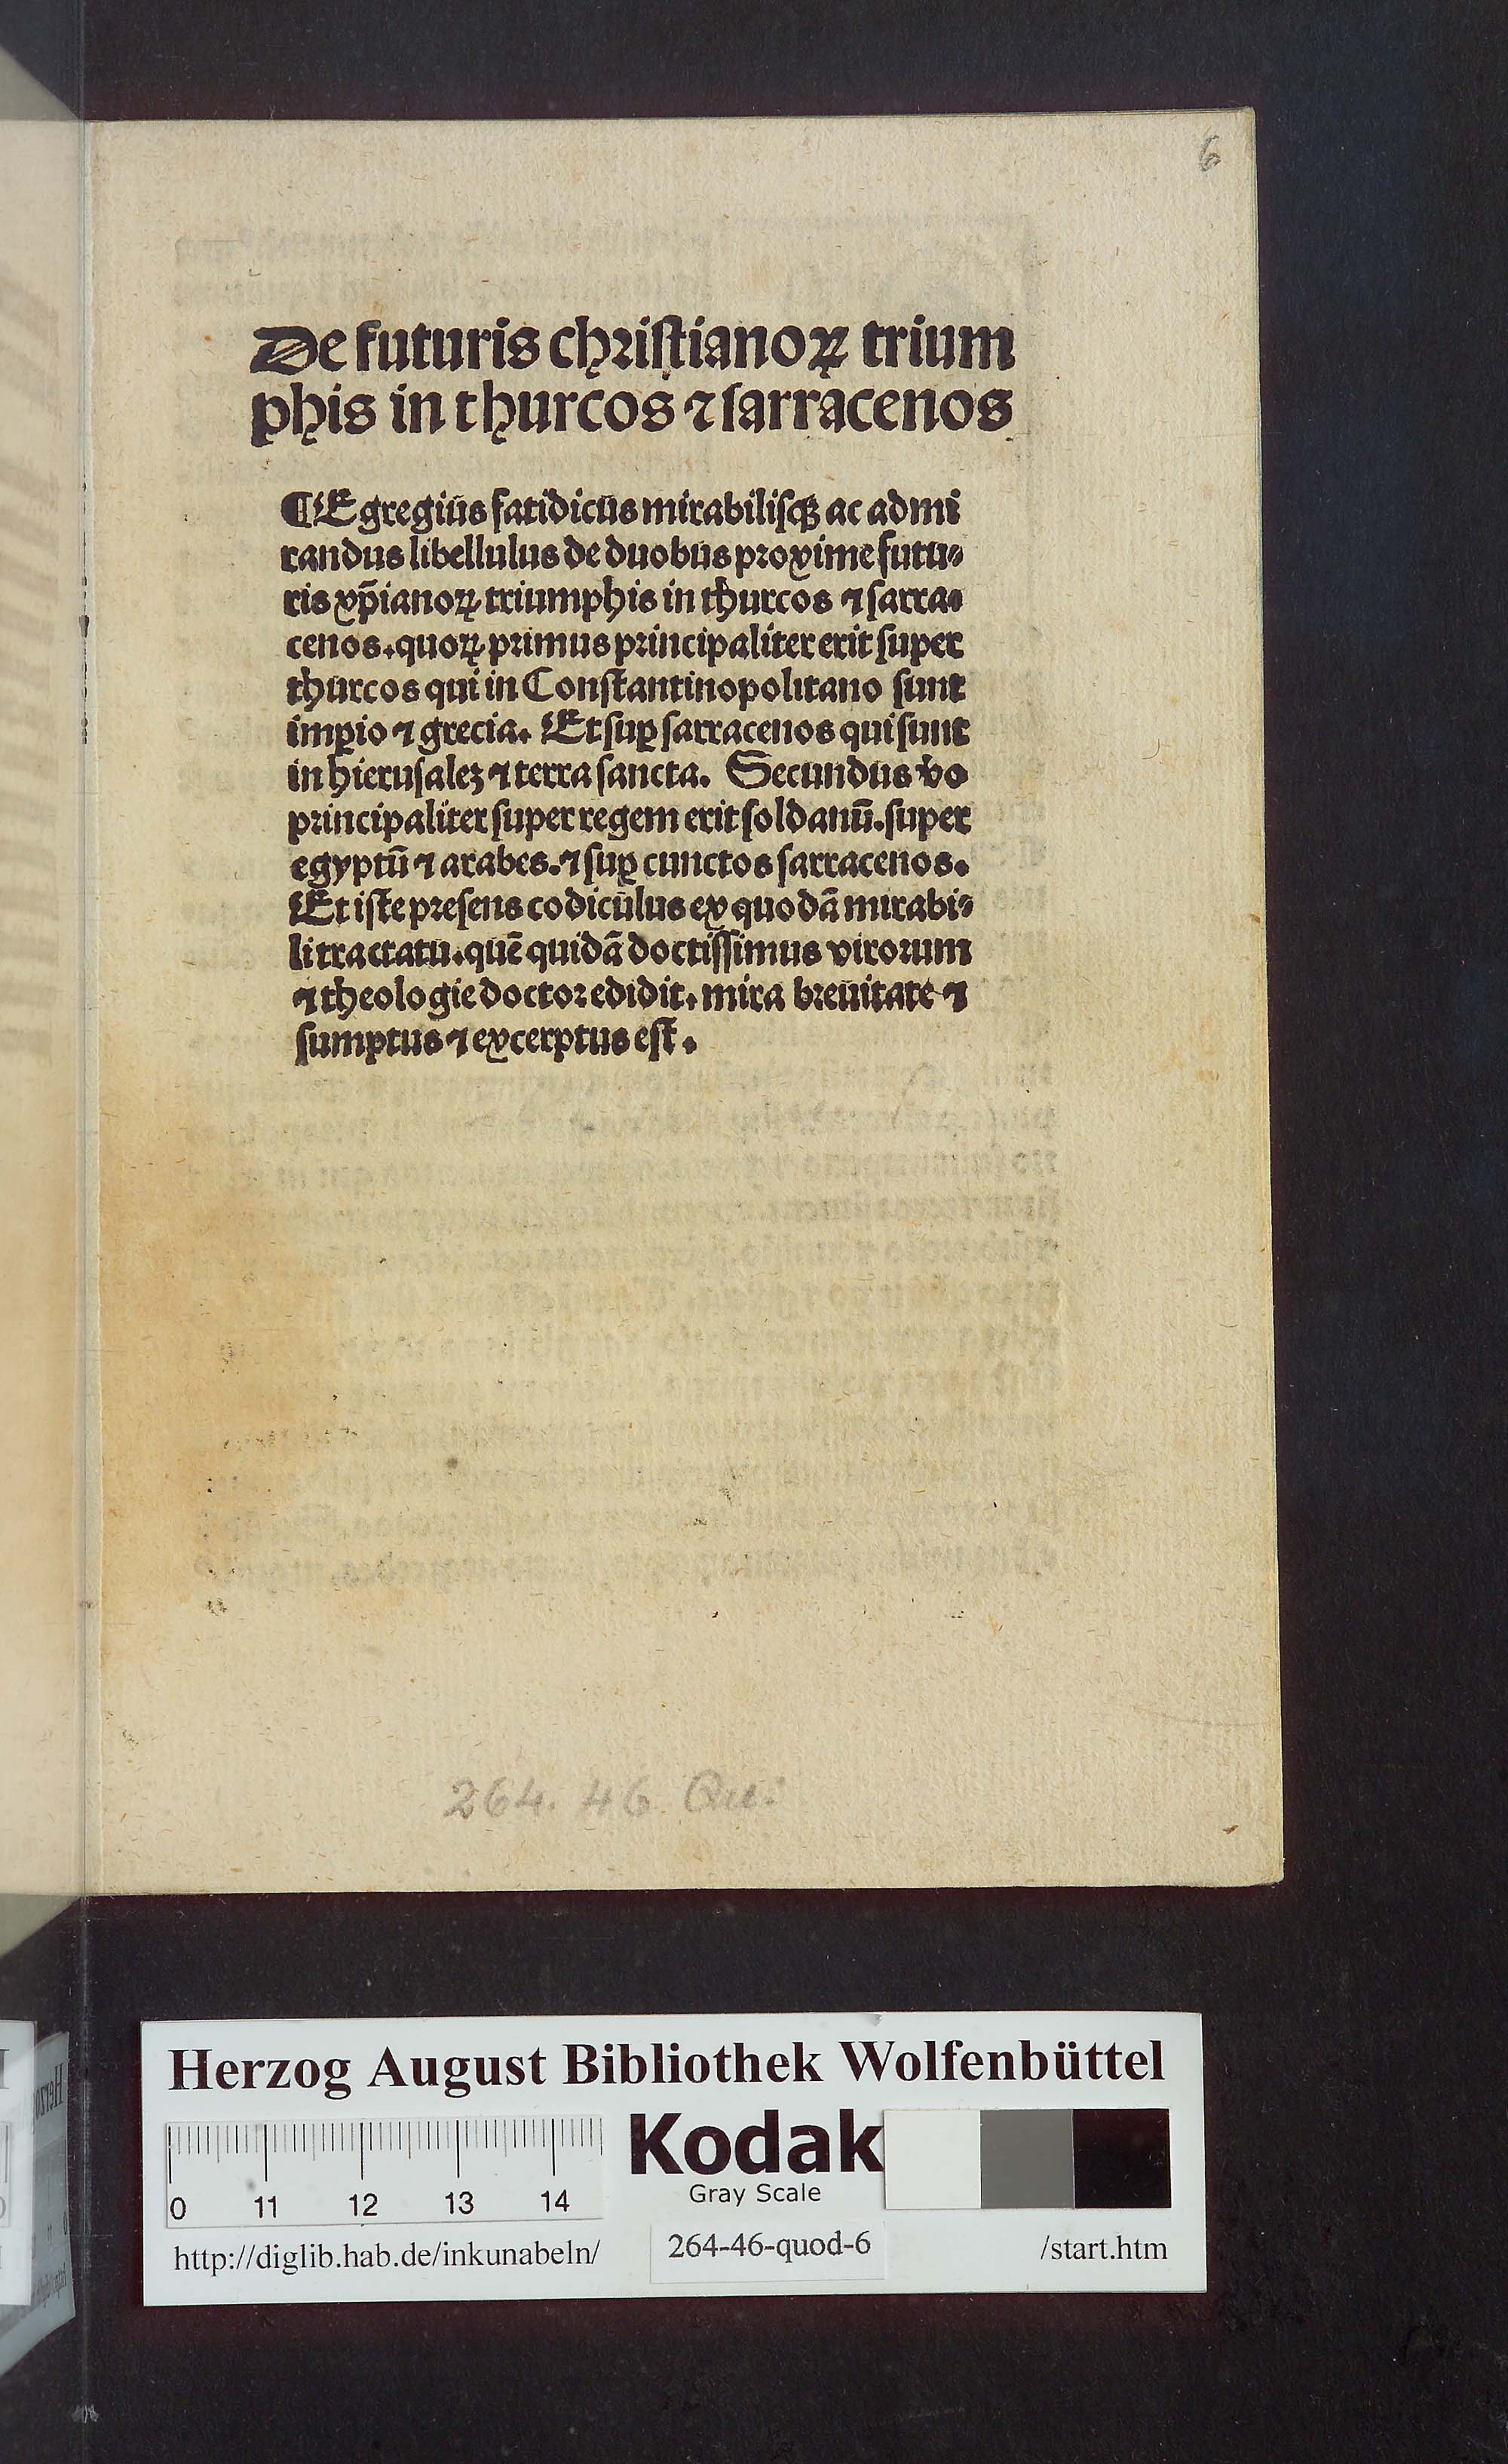 6
De futuris chꝛiſtianoꝝ trium
phis in thurcos ⁊ ſarracenos
¶ Egregius fatidicus mirabiliſqꝫ ac admi
randus libellulus de duobus pꝛoxime futu⸗
ris xp̄ianoꝝ triumphis in thurcos ⁊ ſarra⸗
cenos. quoꝝ pꝛimus pꝛincipaliter erit ſuper
thurcos qui in Conſtantinopolitano ſunt
imꝑio ⁊ grecia. Et ſuꝑ ſarracenos qui ſunt
in hieruſalez ⁊ terra ſancta. Secundus v̓o
pꝛincipaliter ſuper regem erit ſoldanū. ſuper
egyptū ⁊ arabes. ⁊ ſuꝑ cunctos ſarracenos.
Et iſte pꝛeſens codiculus ex quodā mirabi⸗
li tractatu. quē quidā doctiſſimus viroꝛum
⁊ theologie doctoꝛ edidit. mira bꝛeuitate ⁊
ſumptus ⁊ excerptus eſt.
264. 46. Qu:
Herzog August Bibliothek Wolfenbüttel
Kodak
Gray Scale
0 11 12 13 14
http://diglib.hab.de/inkunabeln/ 264-46-quod-6 /start.htm